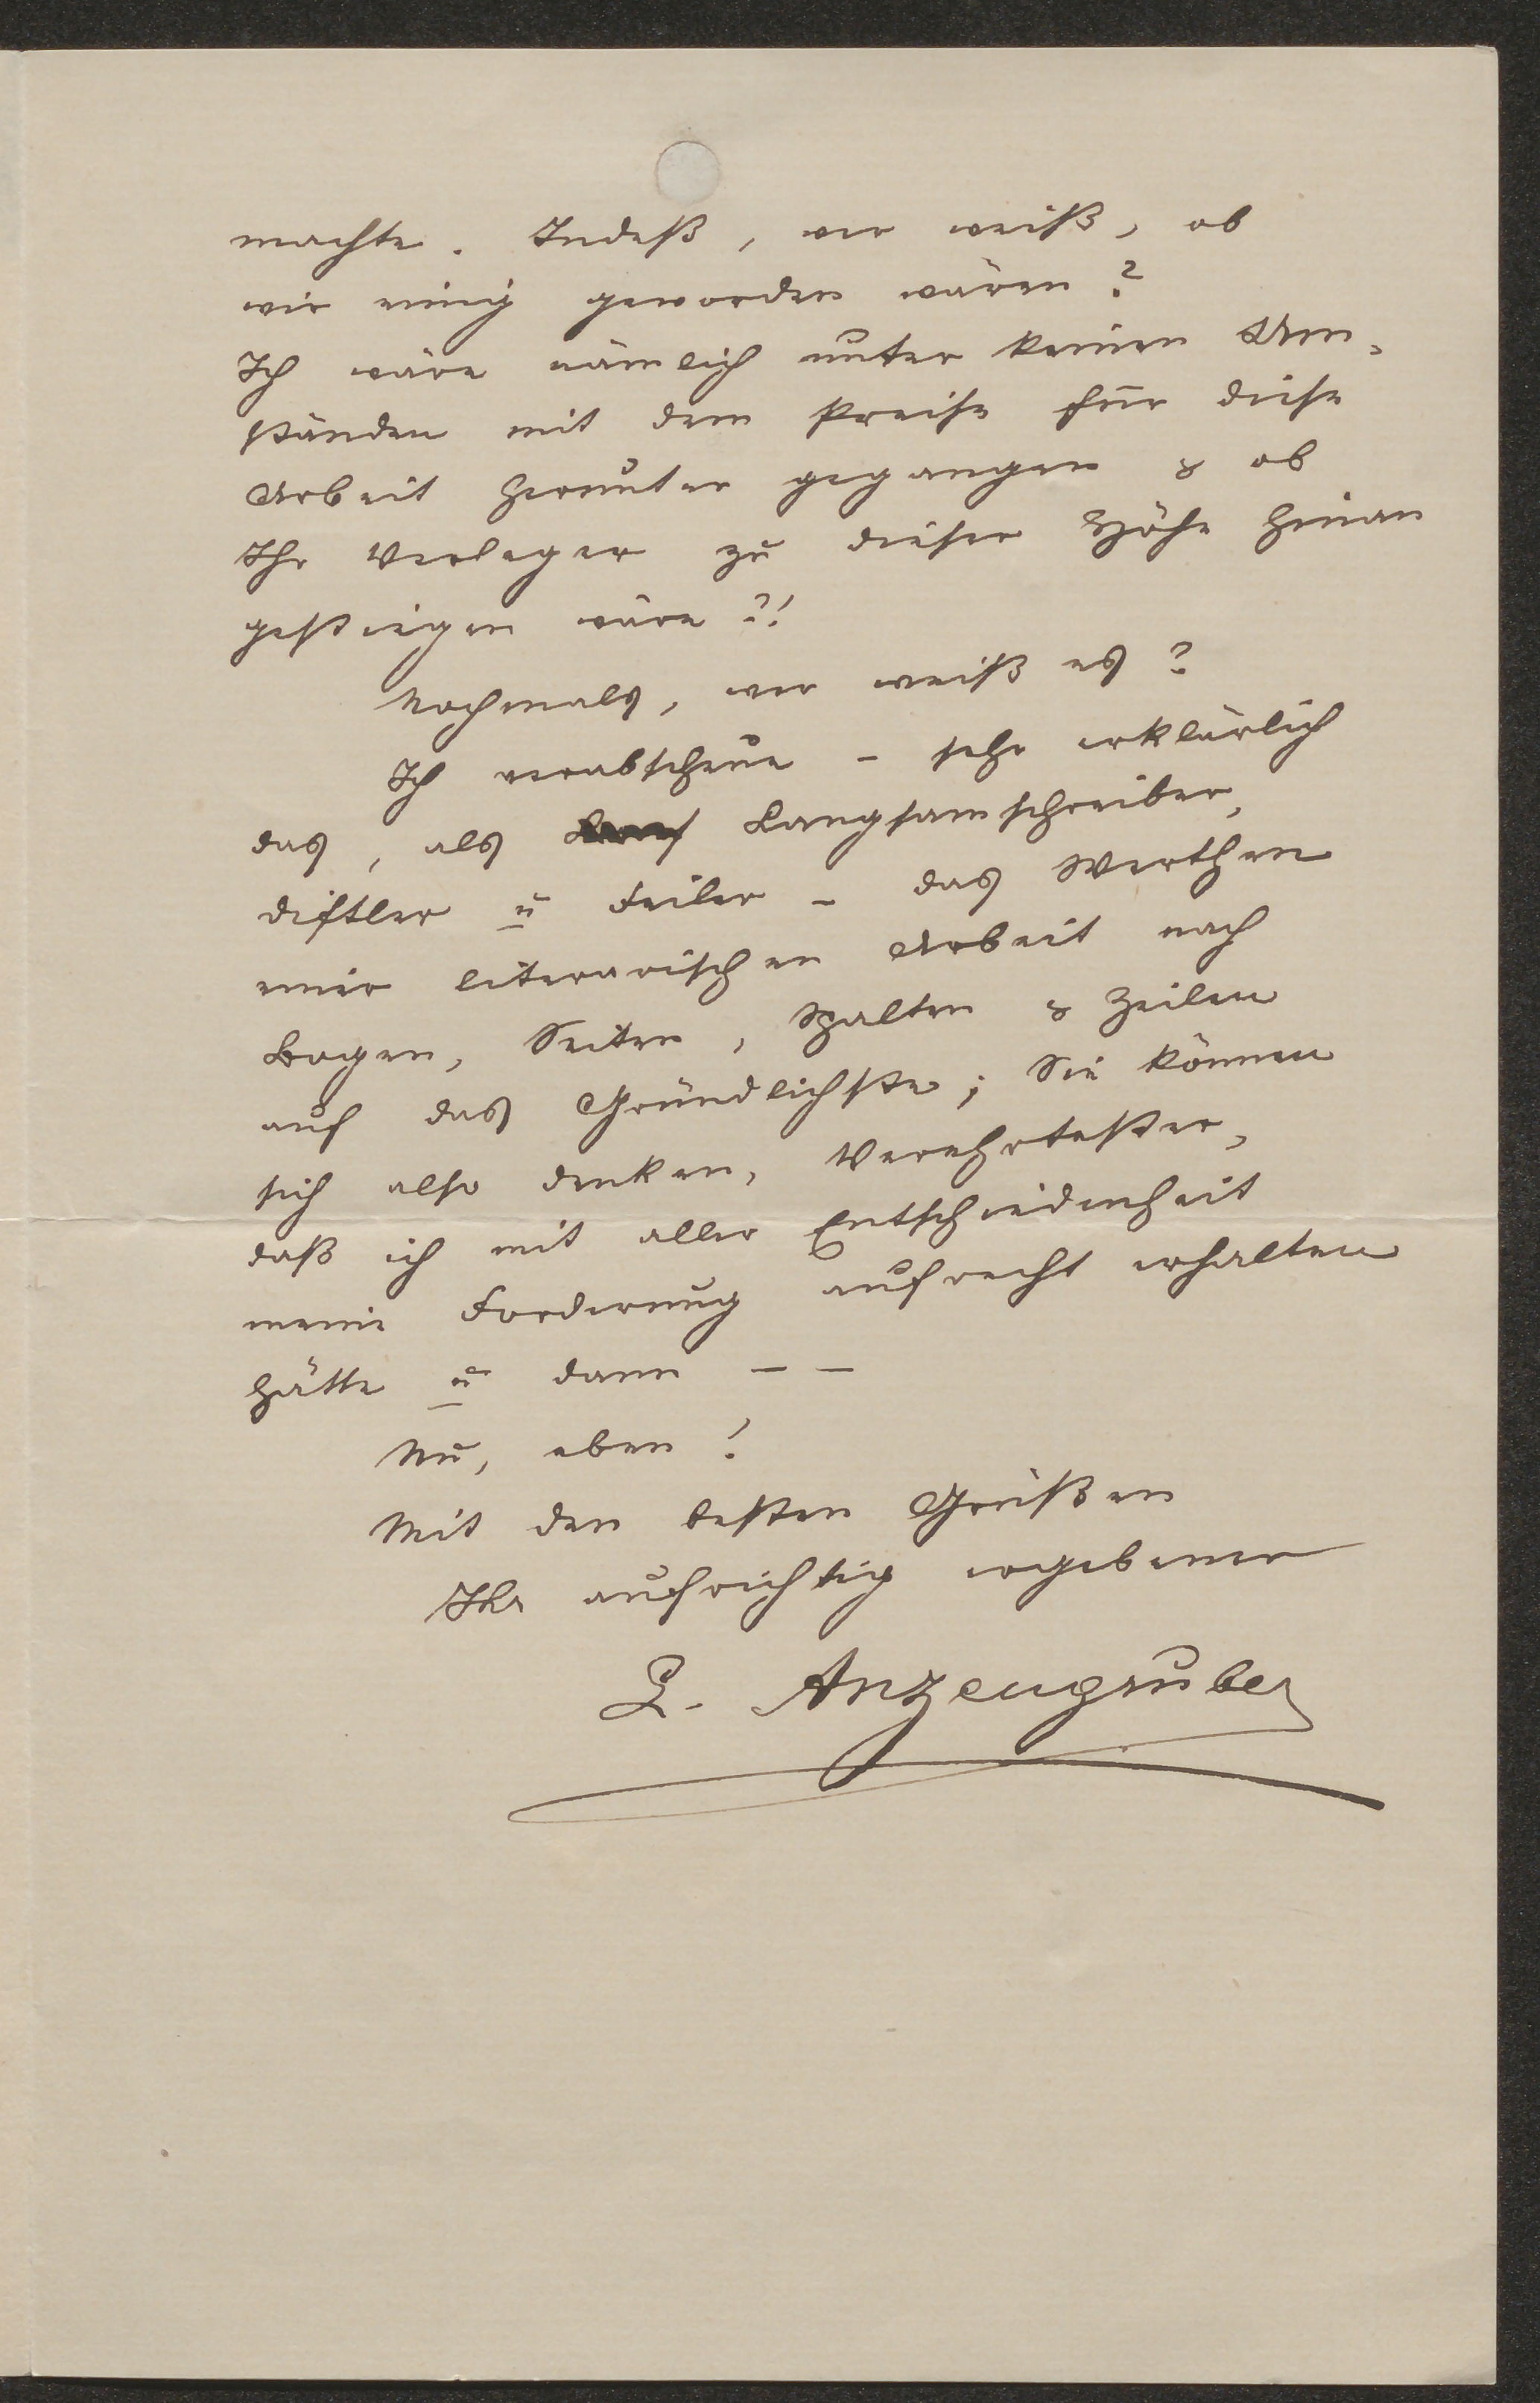 machte. Indeß, wer weiß, ob
wir einig geworden wären?
Ich wäre nämlich unter keinen Um-
ständen mit dem Preise für diese
Arbeit herunter gegangen & ob
Ihr Verleger zu dieser Höhe hinan
gestiegen wäre?!
Nochmals, wer weiß es?
Ich verabscheue – sehr erklärlich
das, als Langsamschreiber,
Diftler u Feiler – das Werthen
einer literarischen Arbeit nach
Bogen, Seiten, Spalten & Zeilen
auf das Gründlichste; Sie können
sich also denken, Verehrtester,
daß ich mit aller Entschiedenheit
meine Forderung aufrecht erhalten
hätte u dann – –
Nu, eben!
Mit den besten Grüßen
Ihr aufrichtig ergebener
L. Anzengruber